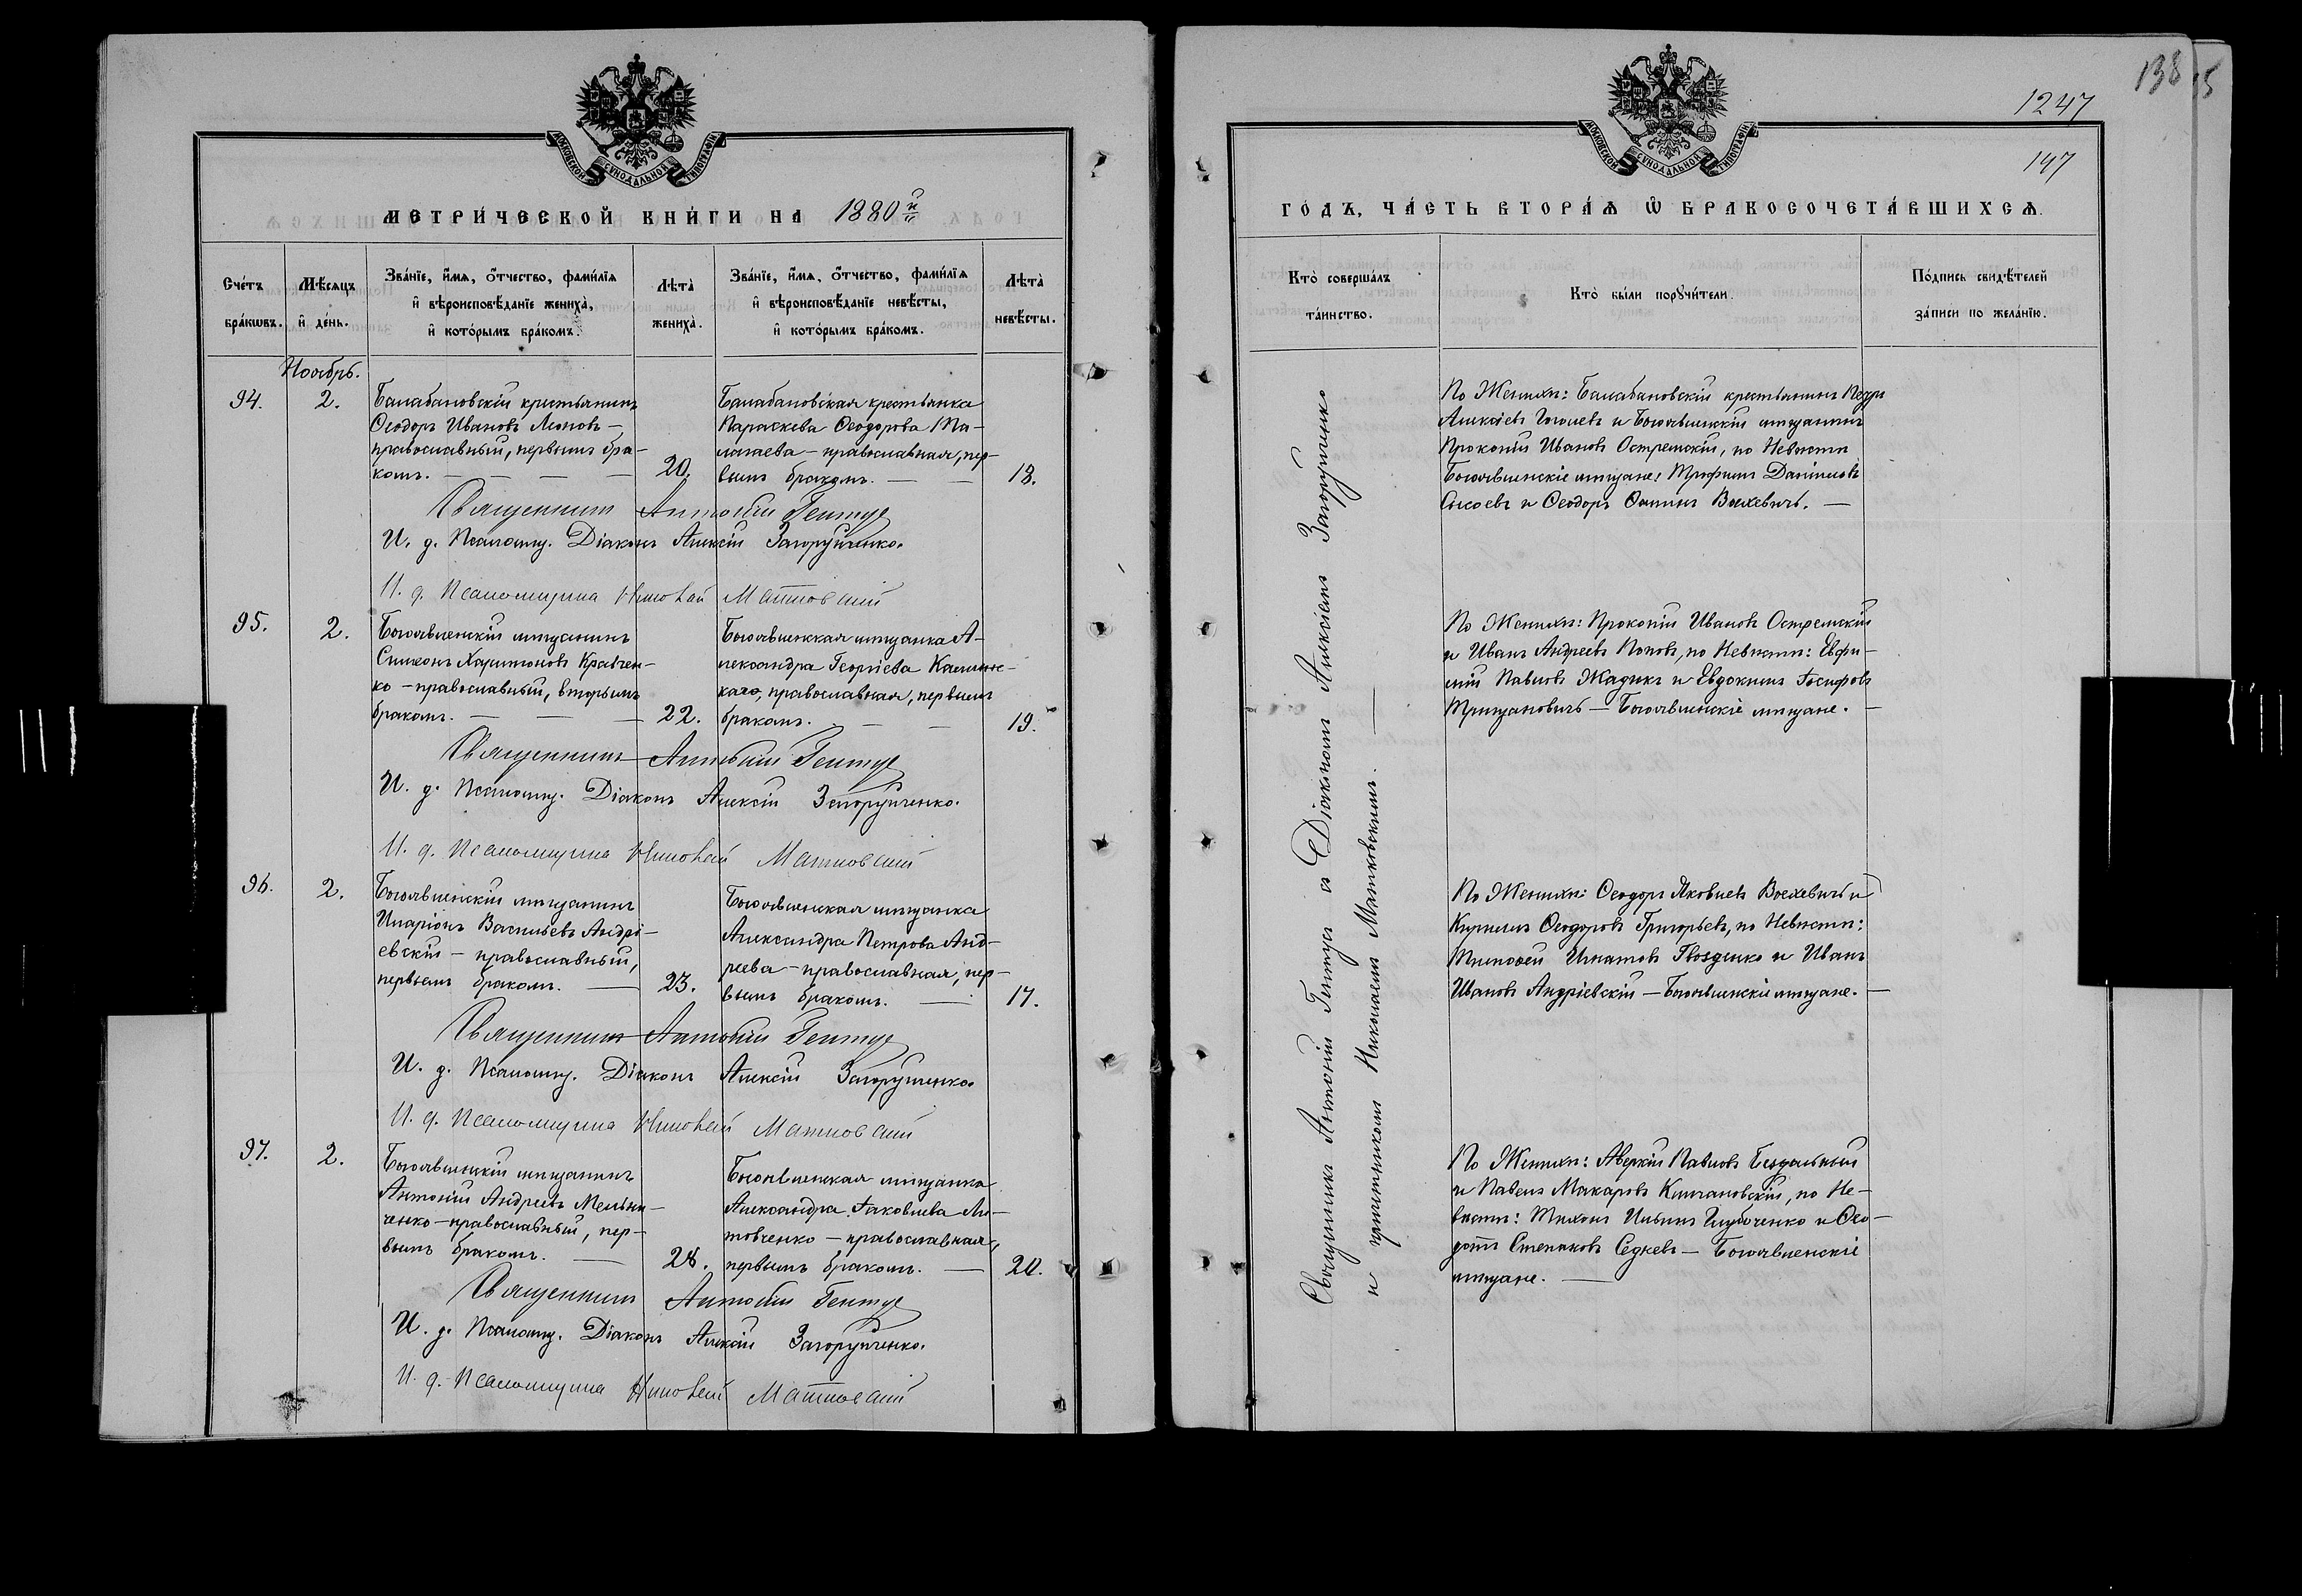 МОСКОВСКОЙ СѴНОДАЛЬНОЙ ТИПОГРАФІИ
МЕТРИ́ЧЕСКОЙ КНИ́ГИ НА 1880й
Сче́тъ бра́кωвъ.
Мѣ́сяцъ и҆ де́нь.
Зва́нїе, и҆́мѧ, ѻ҆́тчество, фами́лїѧ
и҆ вѣроисповѣ́данїе жениха̀,
и҆ кото́рымъ бра́комъ.
Лѣ́та̀ жениха̀.
Зва́нїе, и҆́мѧ, ѻ҆́тчество, фами́лїѧ
и҆ вѣроисповѣ́данїе невѣ́сты,
и҆ кото́рымъ бра́комъ.
Лѣ́та̀ невѣ́сты.
Ноябрь.
94.
2.
Балабановскій крестьянинъ
Ѳеодоръ Ивановъ Леоновъ —
православный, первымъ бра-
комъ.
20.
Балабановская крестьянка
Параскева Ѳеодорова
православная, пер-
вымъ бракомъ.
18.
Священникъ Антоній Гентуе
И. д. Псаломщ. Діаконъ Алексій Загорупченко.
И. д. Псаломщика Николай Матковскій
95.
2.
Богоявленскій мѣщанинъ
Симеонъ Харитоновъ Кравчен-
ко — православный, вторымъ
бракомъ.
22.
Богоявленская мѣщанка А-
лександра Георгіева
православная, первымъ
бракомъ.
19.
Священникъ Антоній Гентуе
И. д. Псаломщ. Діаконъ Алексій Загорупченко.
И. д. Псаломщика Николай Матковскій
96.
2.
Богоявленскій мѣщанинъ
Иларіонъ Васильевъ Андрі-
евскій — православный,
первымъ бракомъ.
23.
Богоявленская мѣщанка
Александра Петрова Анд-
реева — православная, пер-
вымъ бракомъ.
17.
Священникъ Антоній Гентуе
И. д. Псаломщ. Діаконъ Алексій Загорупченко.
И. д. Псаломщика Николай Матковскій
97.
2.
Богоявленскій мѣщанинъ
Антоній Андреевъ Мельни-
ченко — православный, пер-
вымъ бракомъ.
28.
Богоявленская мѣщанка
Александра Іаковлева Ли-
товченко — православная,
первымъ бракомъ.
20.
Священникъ Антоній Гентуе
И. д. Псаломщ. Діаконъ Алексій Загорупченко.
И. д. Псаломщика Николай Матковскій
138
5
1247
147
МОСКОВСКОЙ СѴНОДАЛЬНОЙ ТИПОГРАФІИ
ГО́ДЪ, ЧА́СТЬ ВТОРА́Ѧ Ѽ БРАКОСОЧЕТА́ВШИХСѦ.
Кто̀ соверша́лъ
та́инство.
Кто̀ бы́ли порꙋчи́тели.
По́дпись свидѣ́телей
за́писи по жела́нїю.
Священникъ Антоній Гентуе съ Діакономъ Алексіемъ Загорупченко
и причетникомъ Николаемъ Матковскимъ.
По Женихѣ: Балабановскій крестьянинъ Педръ
Алексѣевъ и Богоявленскій мѣщанинъ
Прокопій Ивановъ Остремскій, по Невѣстѣ
Богоявленскіе мѣщане: Трофимъ Даніиловъ
Сысоевъ и Ѳеодоръ Воехевичъ.
По Женихѣ: Прокопій Ивановъ Остремскій
и Иванъ Андреевъ Поповъ, по Невѣстѣ: Евфи-
мій Павловъ Жадикъ и Евдокимъ Іосифовъ
Трищановичъ — Богоявленскіе мѣщане.
По Женихѣ: Ѳеодоръ Яковлевъ Воехевичъ и
Ѳеодоровъ Григорьевъ, по Невѣстѣ:
Тимоѳей Игнатовъ Гвозденко и Иванъ
Ивановъ Андріевскій — Богоявленскіе мѣщане.
По Женихѣ: Аверкій Павловъ Бездольный
и Павелъ Макаровъ по Не-
вѣстѣ: Тихонъ Ильинъ Глубоченко и Ѳео-
дотъ Степановъ Седневъ — Богоявленскіе
мѣщане.